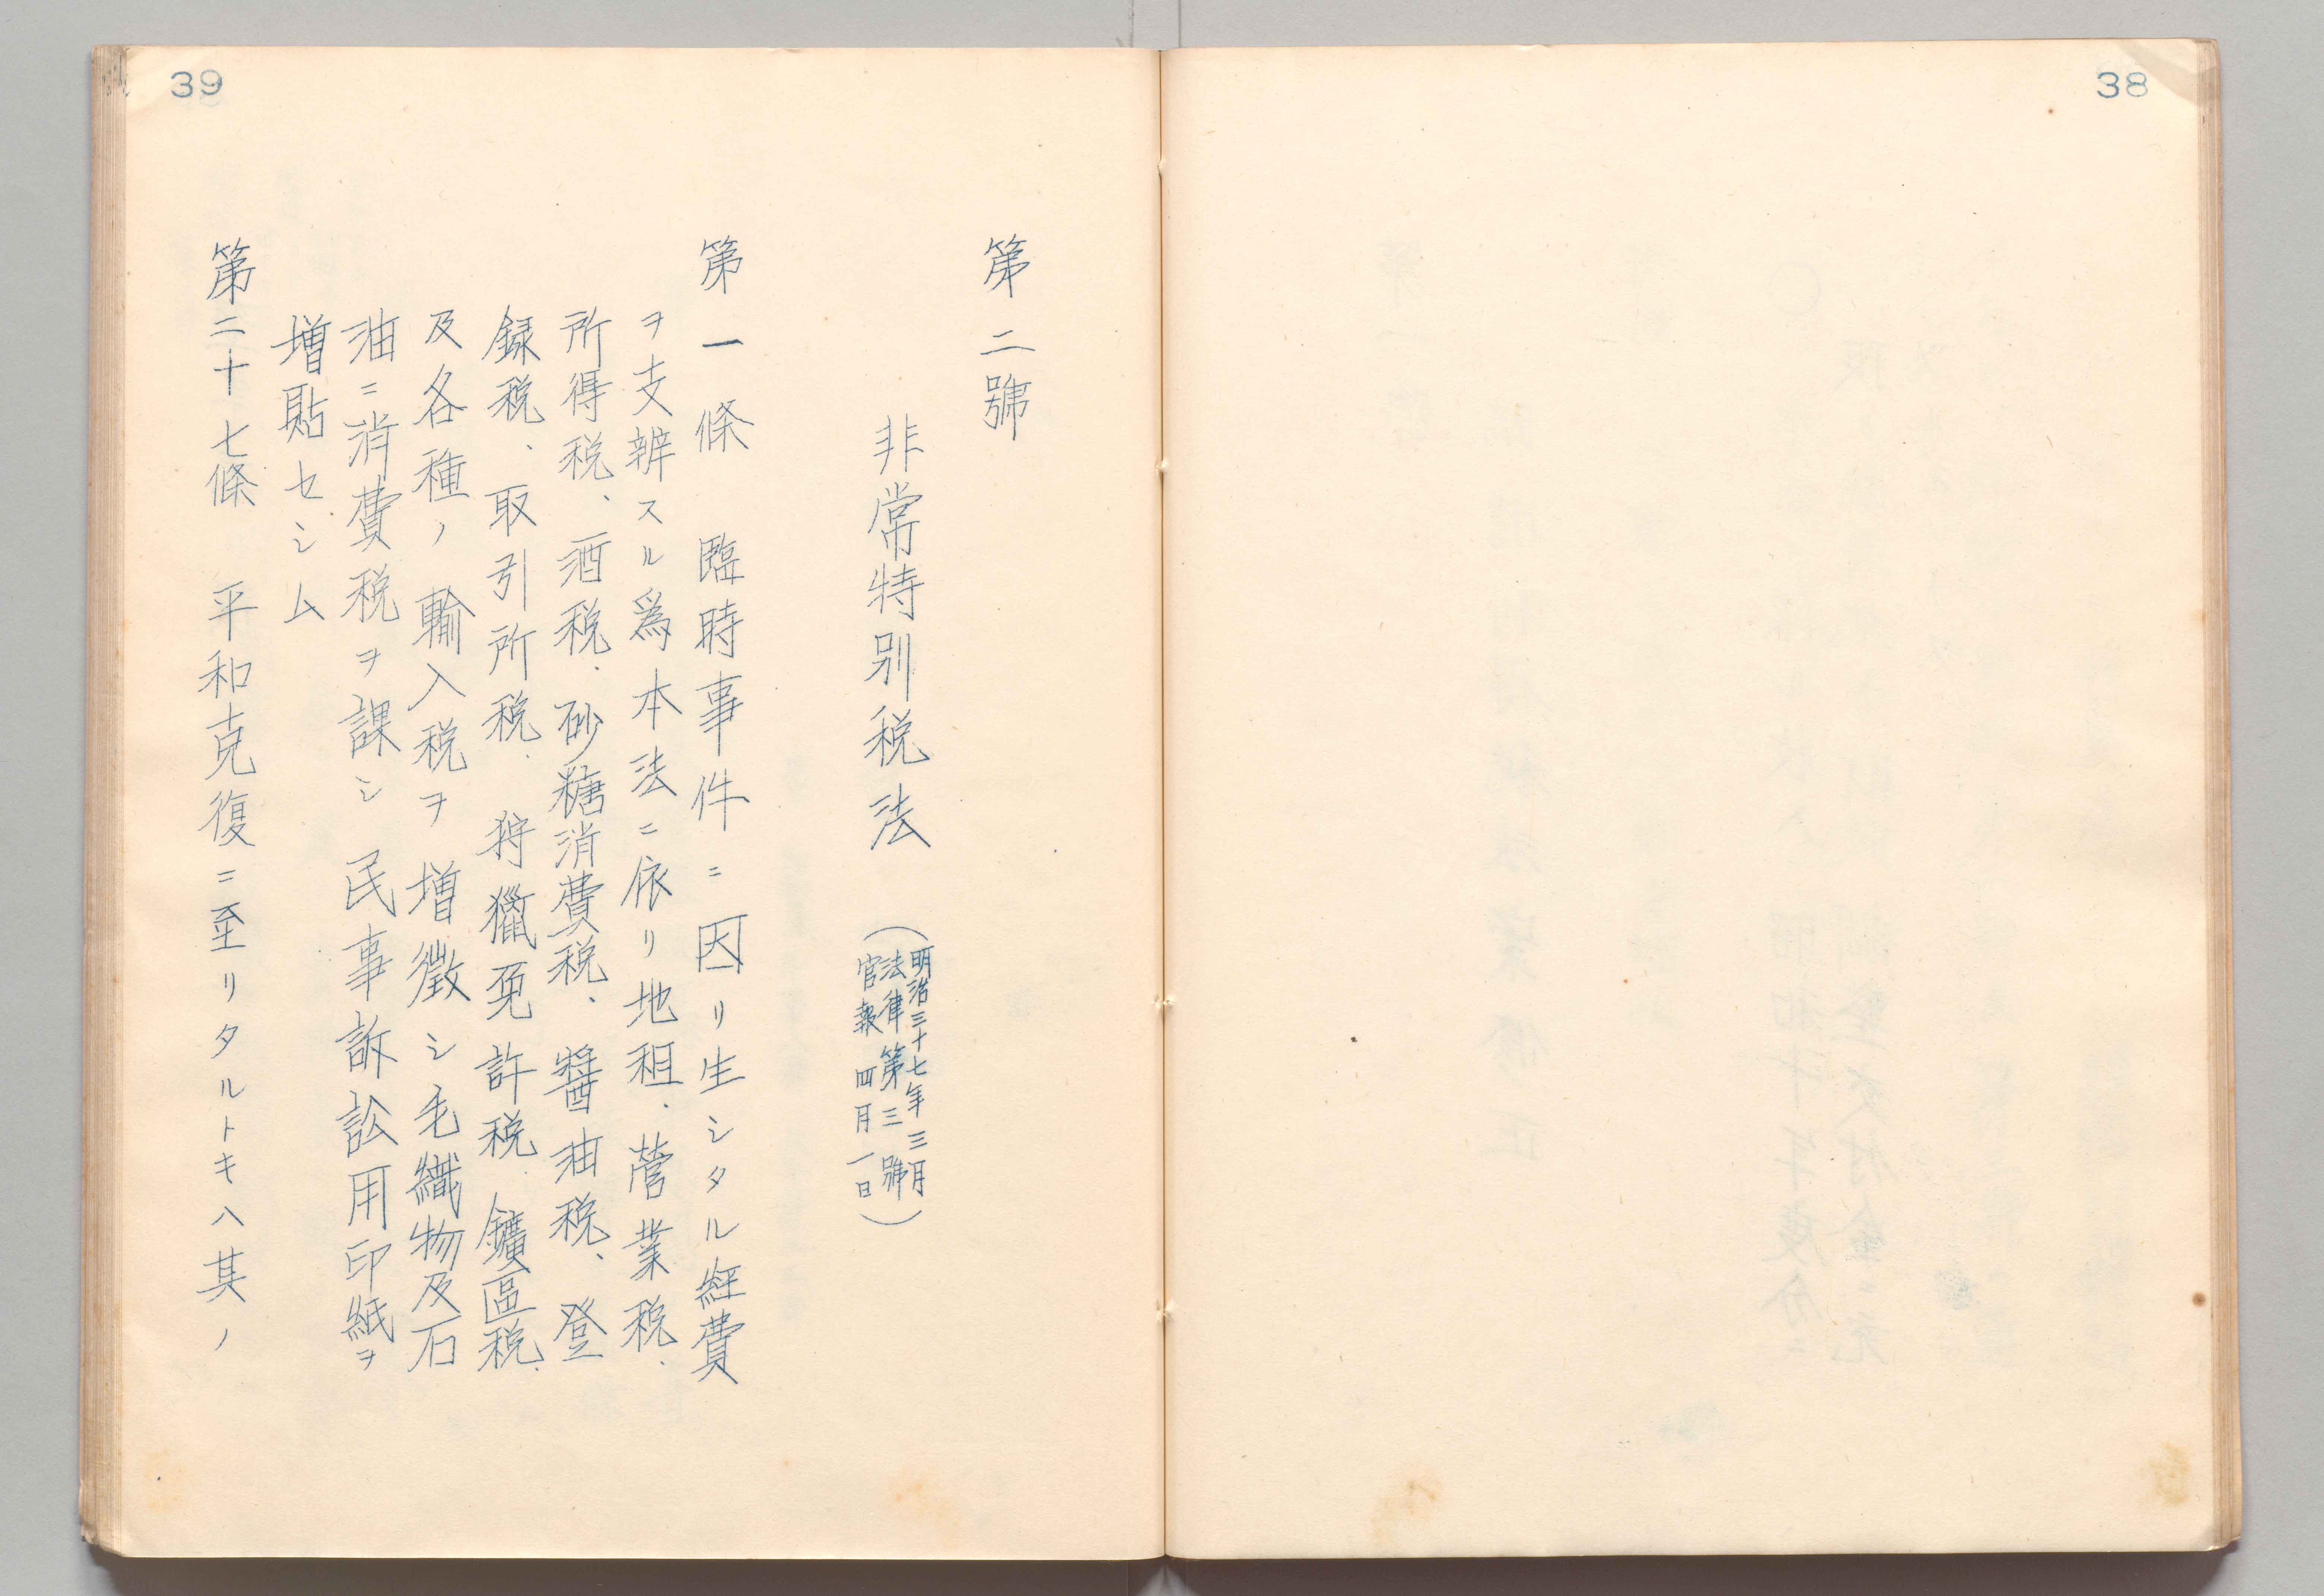 38
39
第二號
非常特別税法
（明治三十七年三月
法律第三號
官報四月一日）
第一條　臨時事件ニ因リ生シタル經費
ヲ支辨スル爲本法ニ依リ地租、營業税、
所得税、酒税、砂糖消費税、醬油税、登
録税、取引所税、狩獵免許税、鑛區税、
及各種ノ輸入税ヲ增徵シ毛織物及石
油ニ消費税ヲ課シ民事訴訟用印紙ヲ
增貼セシム
第二十七條　平和克復ニ至リタルトキハ其ノ